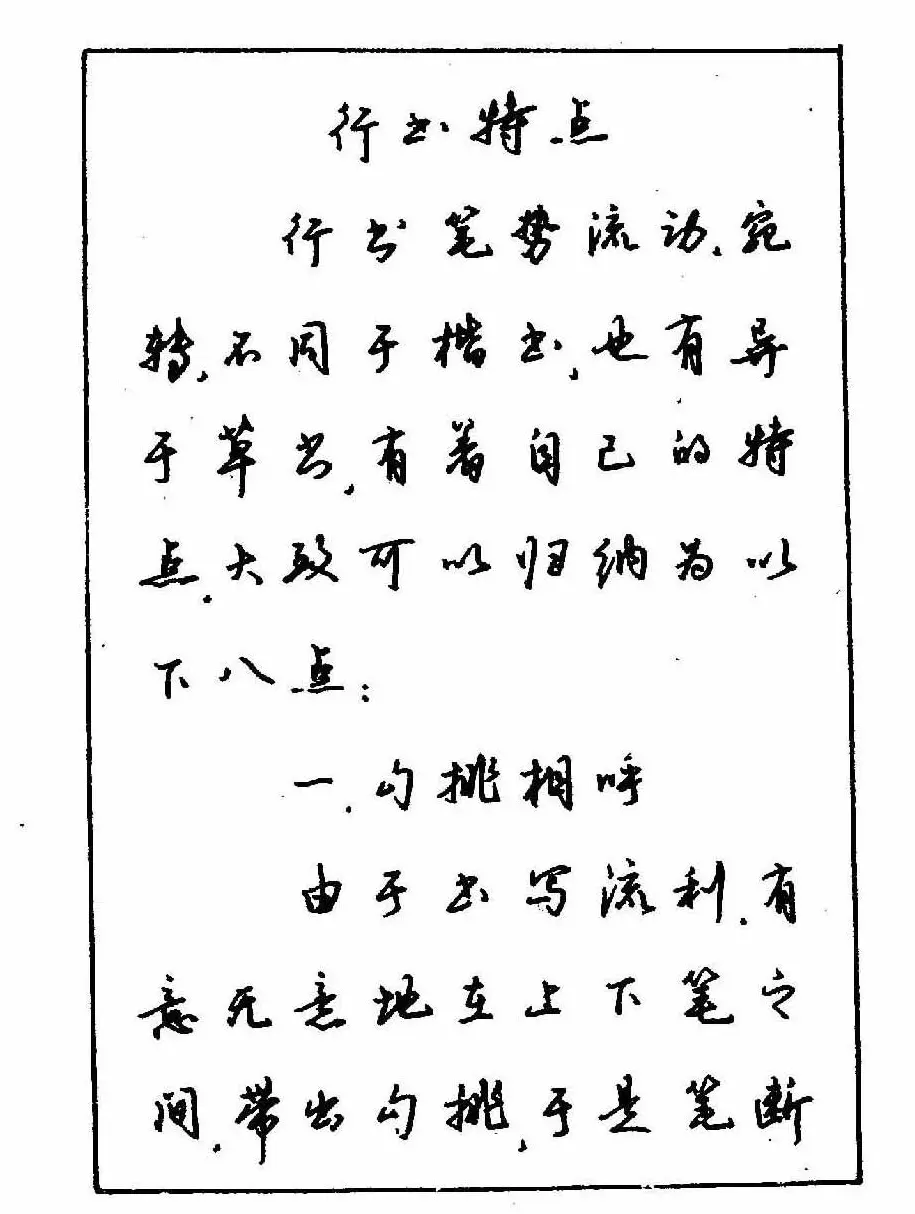 行书特点
行书笔势流动、宛
转,不同于楷书,也有异
于草书,有着自己的特
点.大致可以归纳为以
下八点:
一、勾挑相呼
由于书写流利,有
意无意地在上下笔之
间,带出勾挑,于是笔断